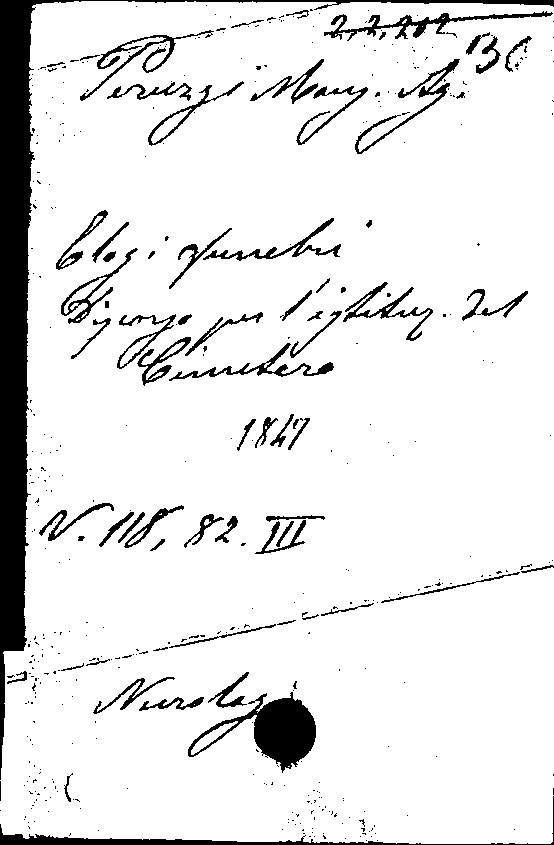 2,2,202
Peruzzi Mons. Ag. 36
Elogi funebri
Discorso per l'istituz. del
Cimetero
1847
V. 118, 82. III
Necrologi